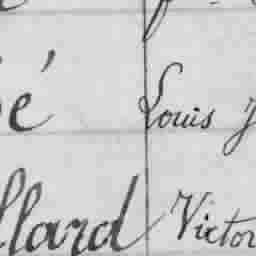 é Louis J
llard Victor